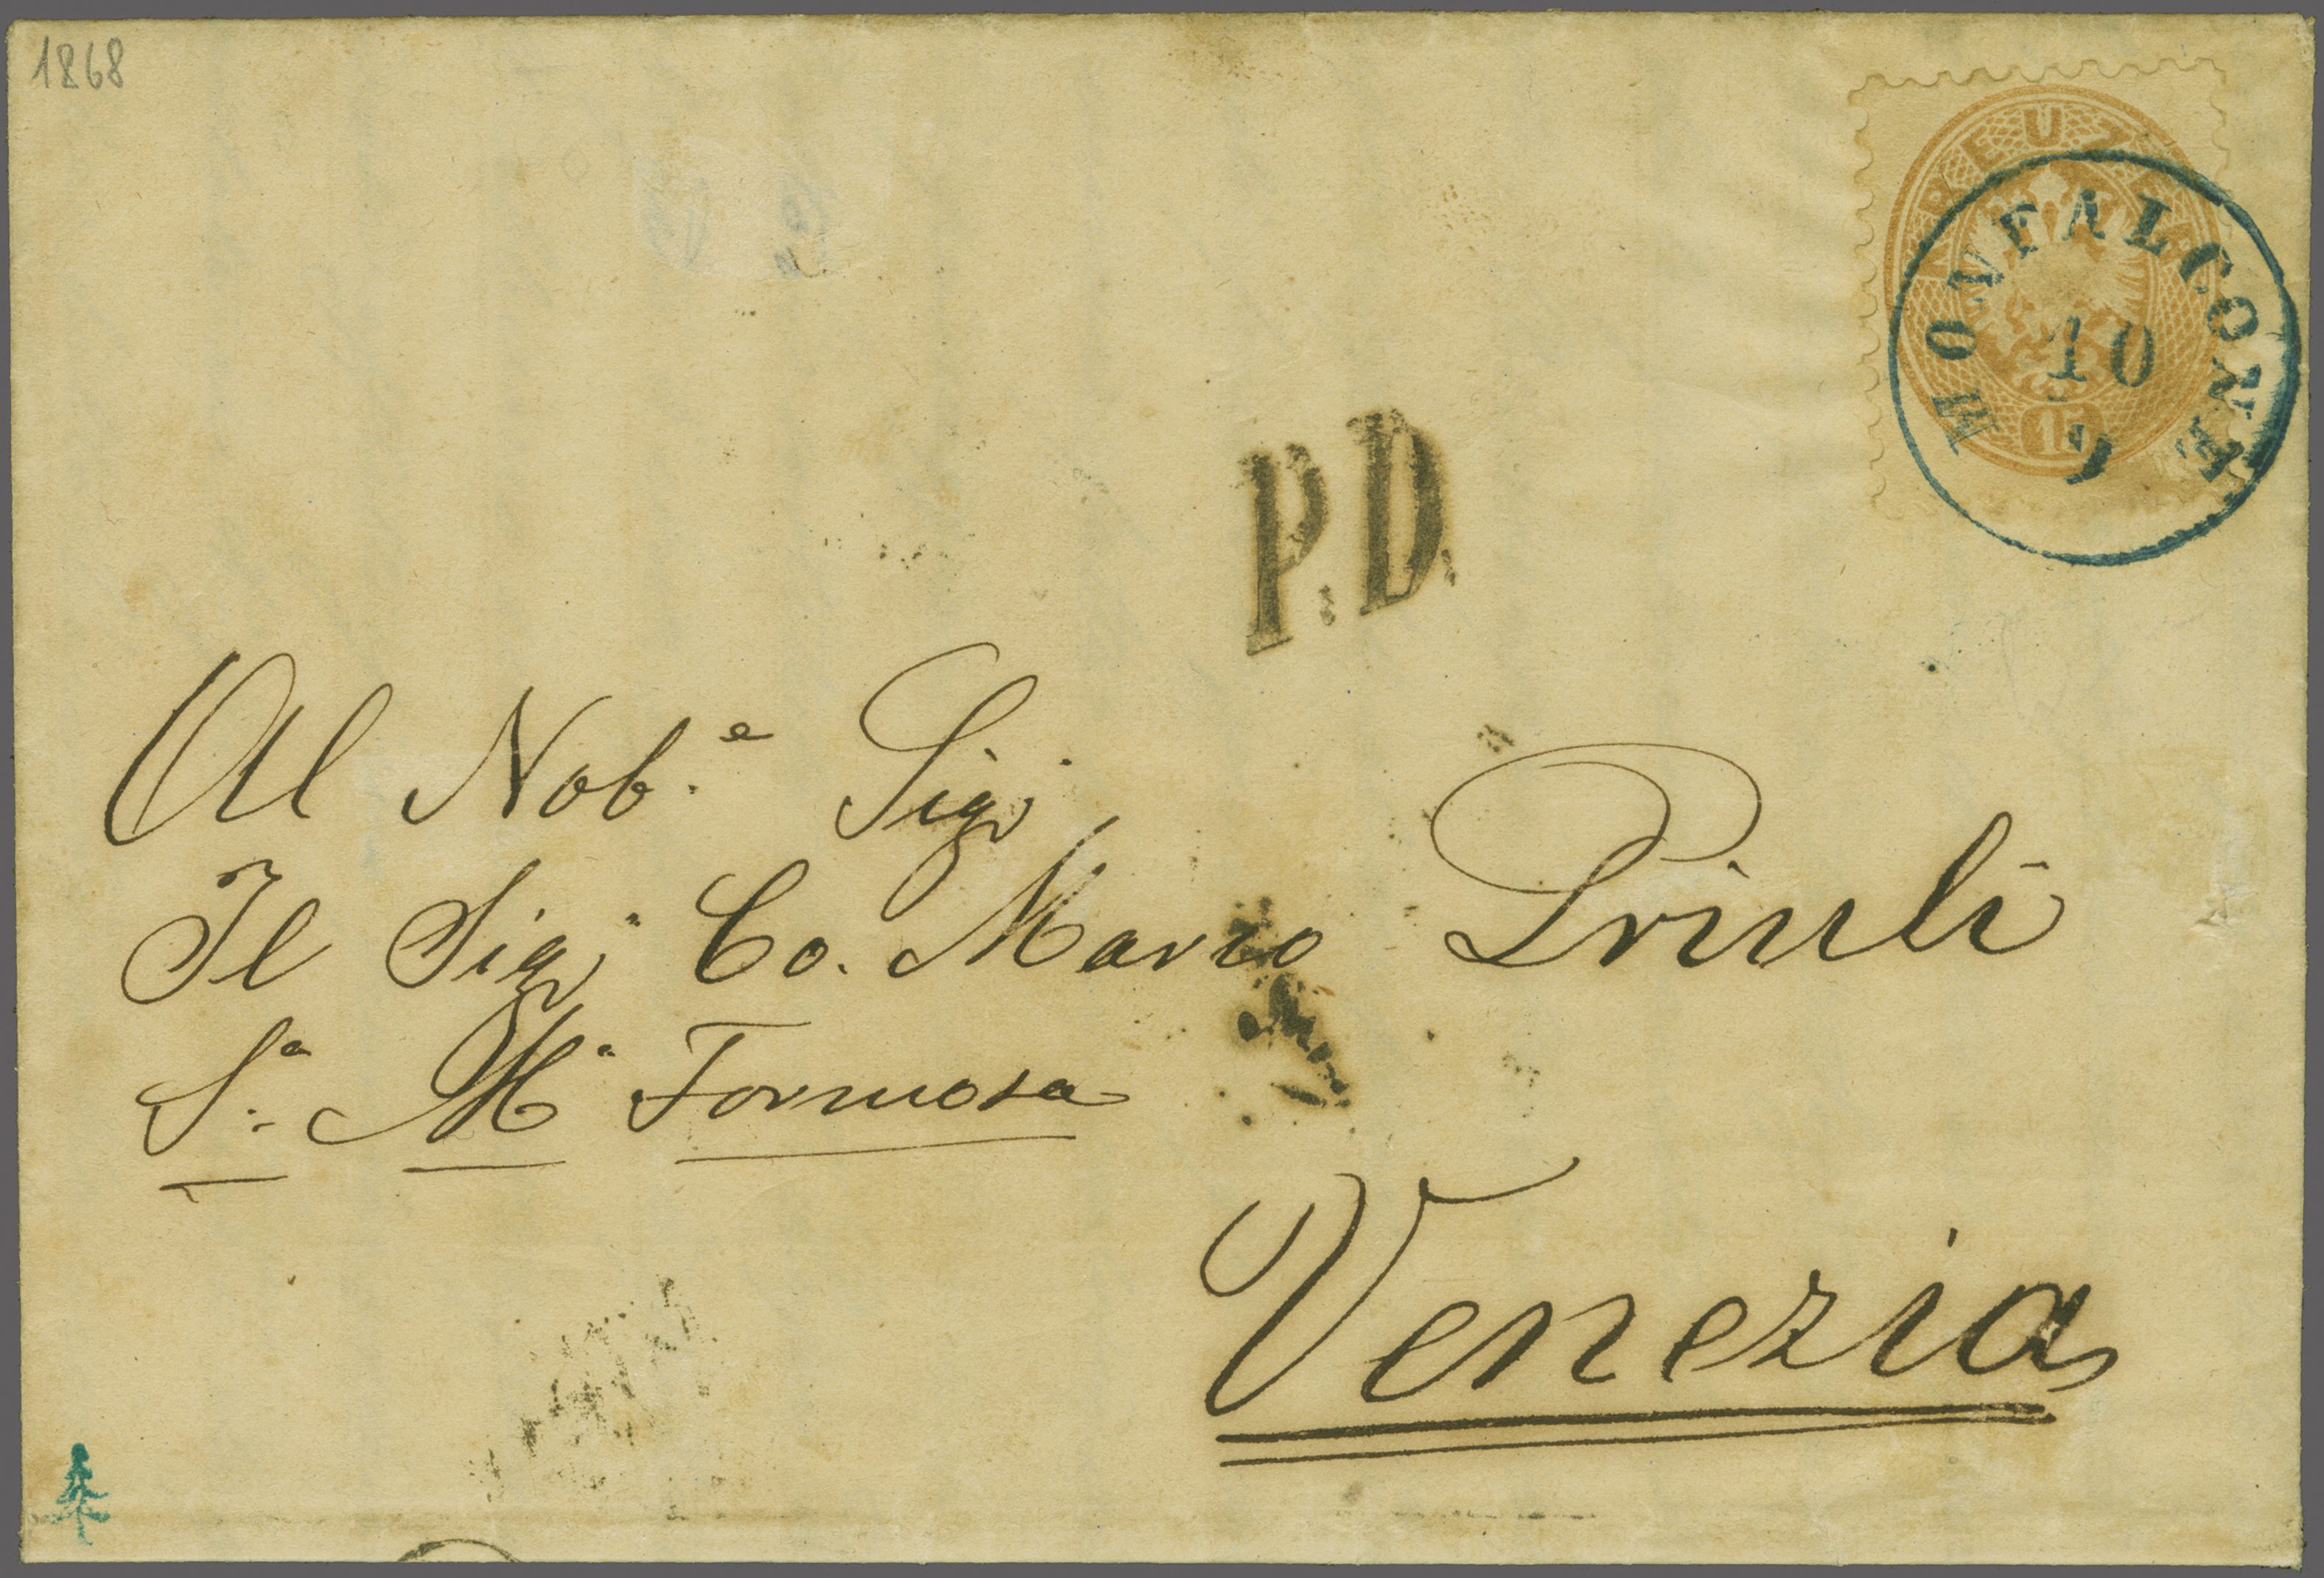 1868
KREUZER
15
MONFALCONE
10
9
P.D.
Al Nob.e Sigr
Il Sigr Co. Marco Priuli
S.a M.a Formosa
Venezia